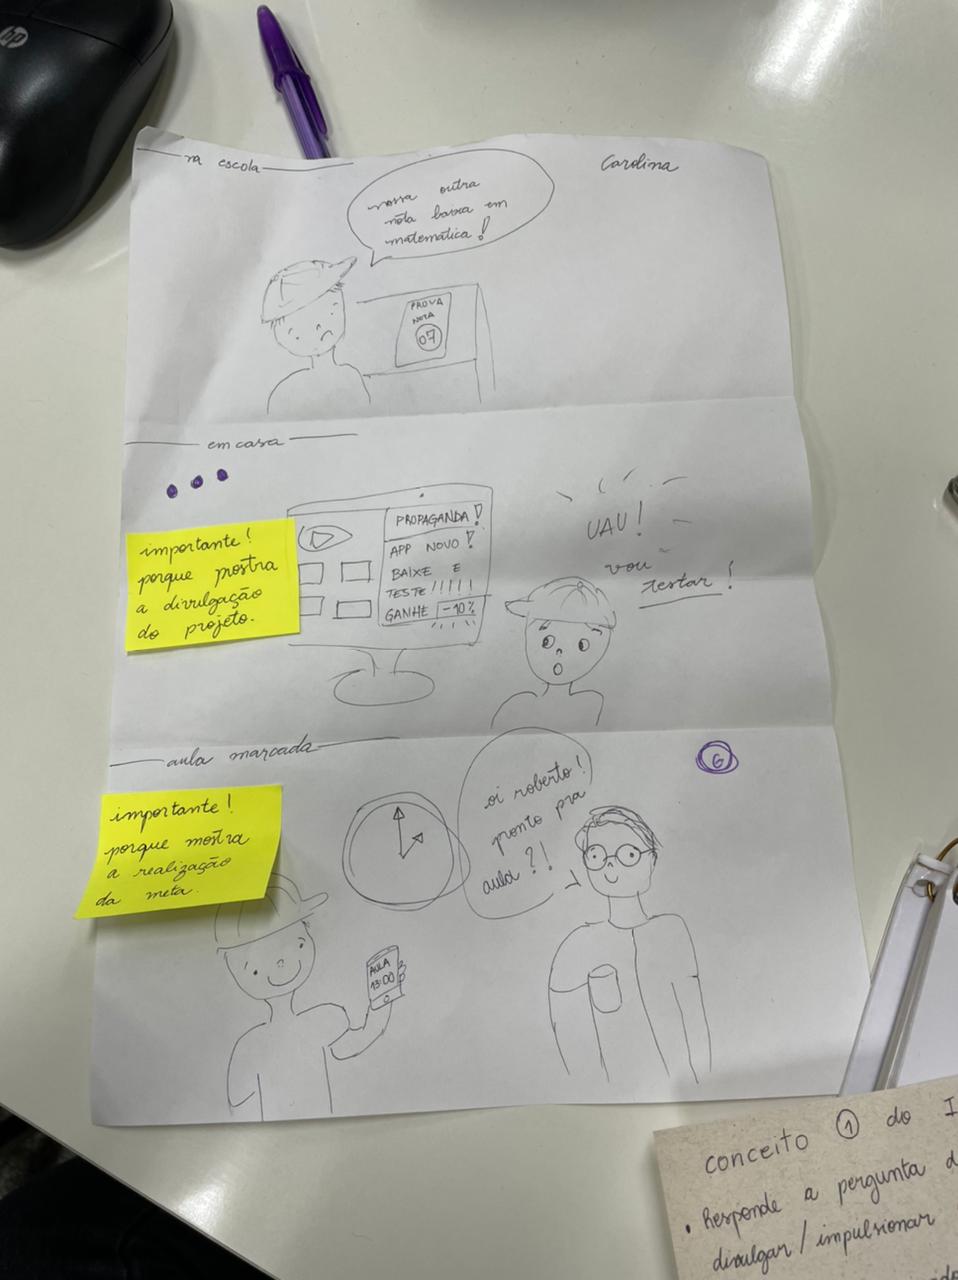 hp
na escola
Carolina
nossa outra
nota baixa em
matemática!
PROVA
NOTA
07
em casa
importante!
porque mostra
a divulgação
do projeto.
PROPAGANDA!
APP NOVO!
BAIXE E
TESTE!!!!!
GANHE -10%
UAU!
vou
testar!
aula marcada
G
importante!
porque mostra
a realização
da meta.
oi roberto!
pronto pra
aula?!
AULA
13:00
conceito 1 do I
• Responde a pergunta d
divulgar/impulsionar